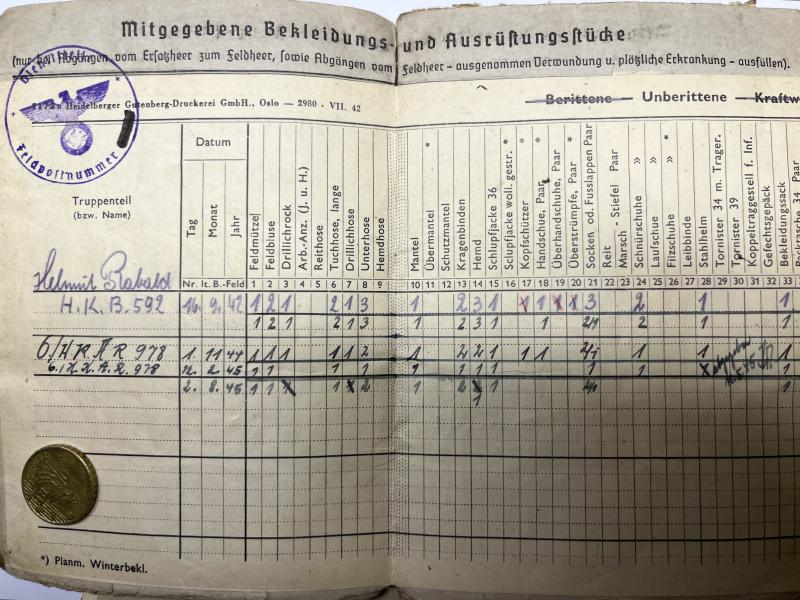 Mitgegebene Bekleidungs- und Ausrüstungsstücke
(nur bei Abgängen vom Ersatzheer zum Feldheer, sowie Abgängen vom Feldheer - ausgenommen Verwundung u. plötzliche Erkrankung - ausfüllen).
Dienststelle
Feldpostnummer
Heidelberger Gutenberg-Druckerei GmbH., Oslo — 2980 · VII. 42
Berittene — Unberittene — Kraftw
Truppenteil
(bzw. Name)
Datum
Tag
Monat
Jahr
Feldmütze
Feldbluse
Drillichrock
Arb.-Anz. (J. u. H.)
Reithose
Tuchhose, lange
Drillichhose
Unterhose
Hemdhose
Mantel
Übermantel *
Schutzmantel
Kragenbinden
Hemd
Schlupfjacke 36
Schlupfjacke woll. gestr. *
Kopfschützer *
Handschue, Paar
Überhandschuhe, Paar *
Überstrümpfe, Paar *
Socken od. Fusslappen Paar
Reit
Marsch - Stiefel Paar
Schnürschuhe »
Laufschue »
Filzschuhe » *
Leibbinde
Stahlhelm
Tornister 34 m. Trager.
Tornister 39
Koppeltraggestell f. Inf.
Gefechtsgepäck
Bekleidungssack
34 Paar
Nr. lt. B.-Feld 1 2 3 4 5 6 7 8 9 10 11 12 13 14 15 16 17 18 19 20 21 22 23 24 25 26 27 28 29 30 31 32 33
Helmut Rabald
H.K.B. 592 14 9. 42 1 2 1 2 1 3 1 2 3 1 x 1 x x 3 2 1 1
1 2 1 2 1 3 1 2 3 1 1 2/1 2 1 1
6./H.K.A.R 978 1. 11 44 1 1 1 1 1 2 1 2 2 1 1 1 2/1 1 1 1
6./H.K.A.R. 978 12. 2 45 1 1 1 1 1 1 1 1 1 1 x 1
2. 8. 45 1 1 x 1 x 2 1 2 x 1 2/1 1
1
*) Planm. Winterbekl.